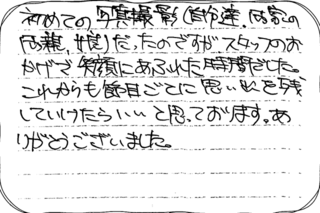 初めての写真撮影(自分達、両家の
両親、娘)だったのですがスタッフのお
かげで笑顔にあふれた時間でした。
これからも節目ごとに思い出を残
していけたらいいと思っております。あ
りがとうございました。